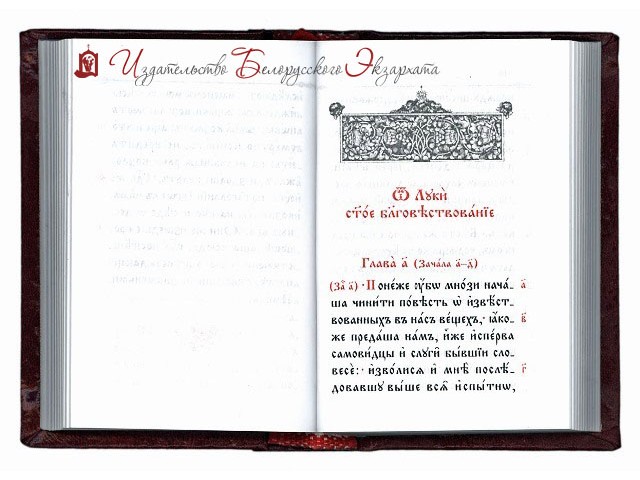 Издательство Белорусского Экзархата
Ѿ Лꙋкѝ
ст҃о́е бл҃говѣствова́нїе
Глава̀ а҃ (Зача́ла а҃–д҃)
(За҃ а҃) Поне́же ᲂу҆́бѡ мно́зи нача́-
ша чини́ти по́вѣсть ѡ҆ и҆звѣ́ст-
вованныхъ въ на́съ ве́щехъ, ꙗ҆́ко-
же преда́ша на́мъ, и҆̀же и҆спе́рва
самови́дцы и҆ слꙋги̑ бы́вшїи сло-
весѐ: и҆зво́лисѧ и҆ мнѣ̀ послѣ́-
довавшꙋ вы́ше всѧ̑ и҆спы́тнѡ,
а҃
в҃
г҃